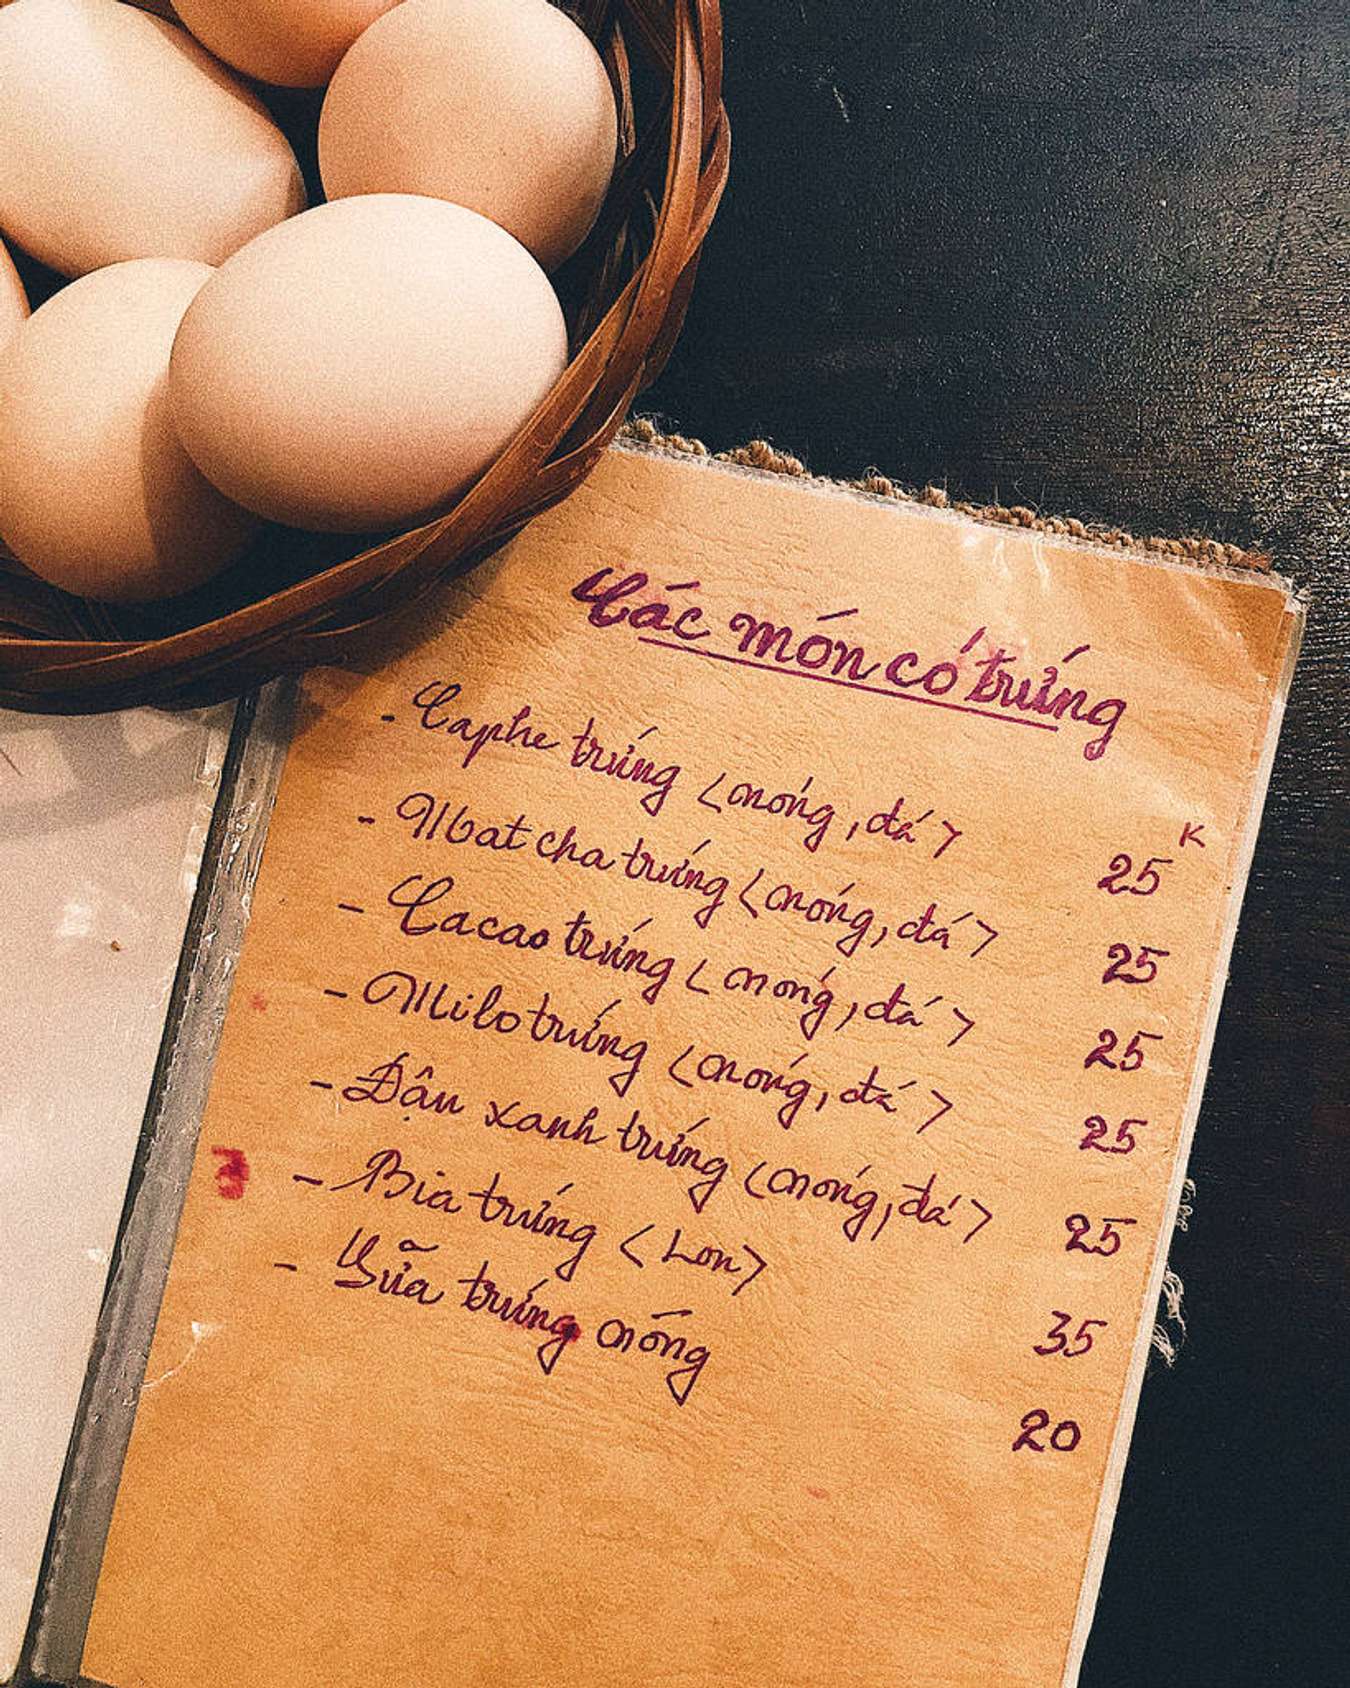 Các món có trứng
K
- Caphe trứng <nóng, đá> 25
- Matcha trứng <nóng, đá> 25
- Cacao trứng <nóng, đá> 25
- Milo trứng <nóng, đá> 25
- Đậu xanh trứng <nóng, đá> 25
- Bia trứng <Lon> 35
- Sữa trứng nóng 20